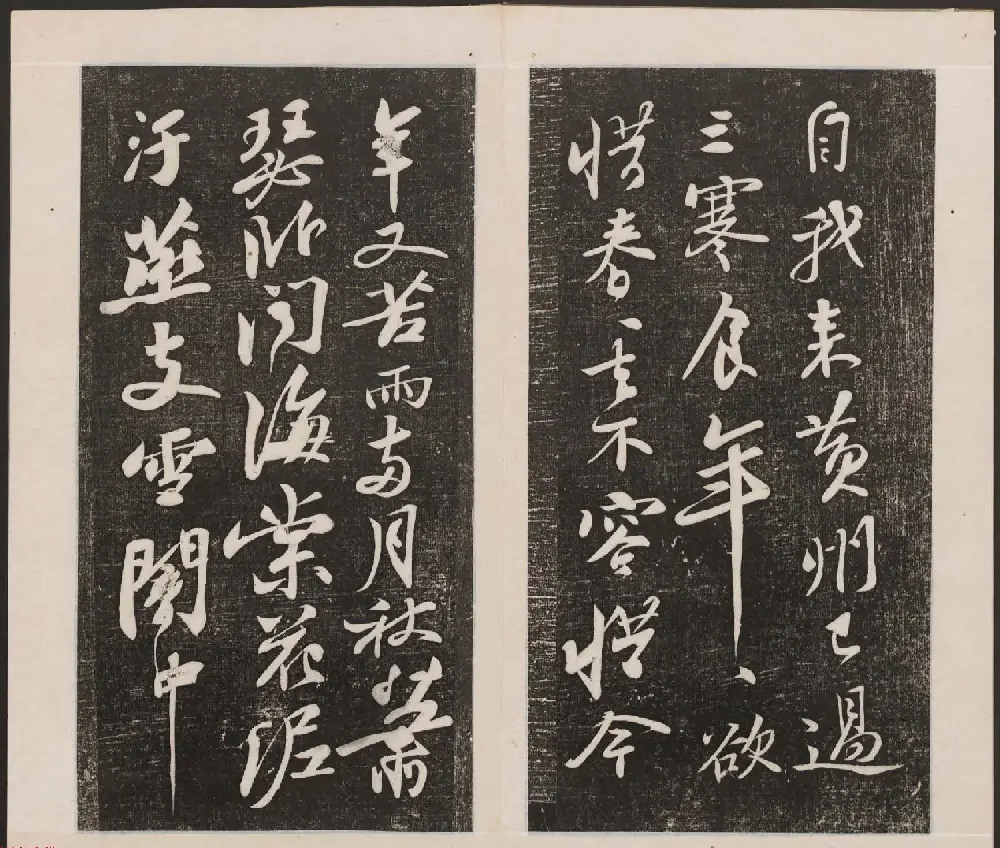 自我来黄州已過
三寒食年、欲
惜春、去不容惜今
年又苦雨兩月秋蕭
瑟卧聞海棠花泥
汙燕支雪闇中